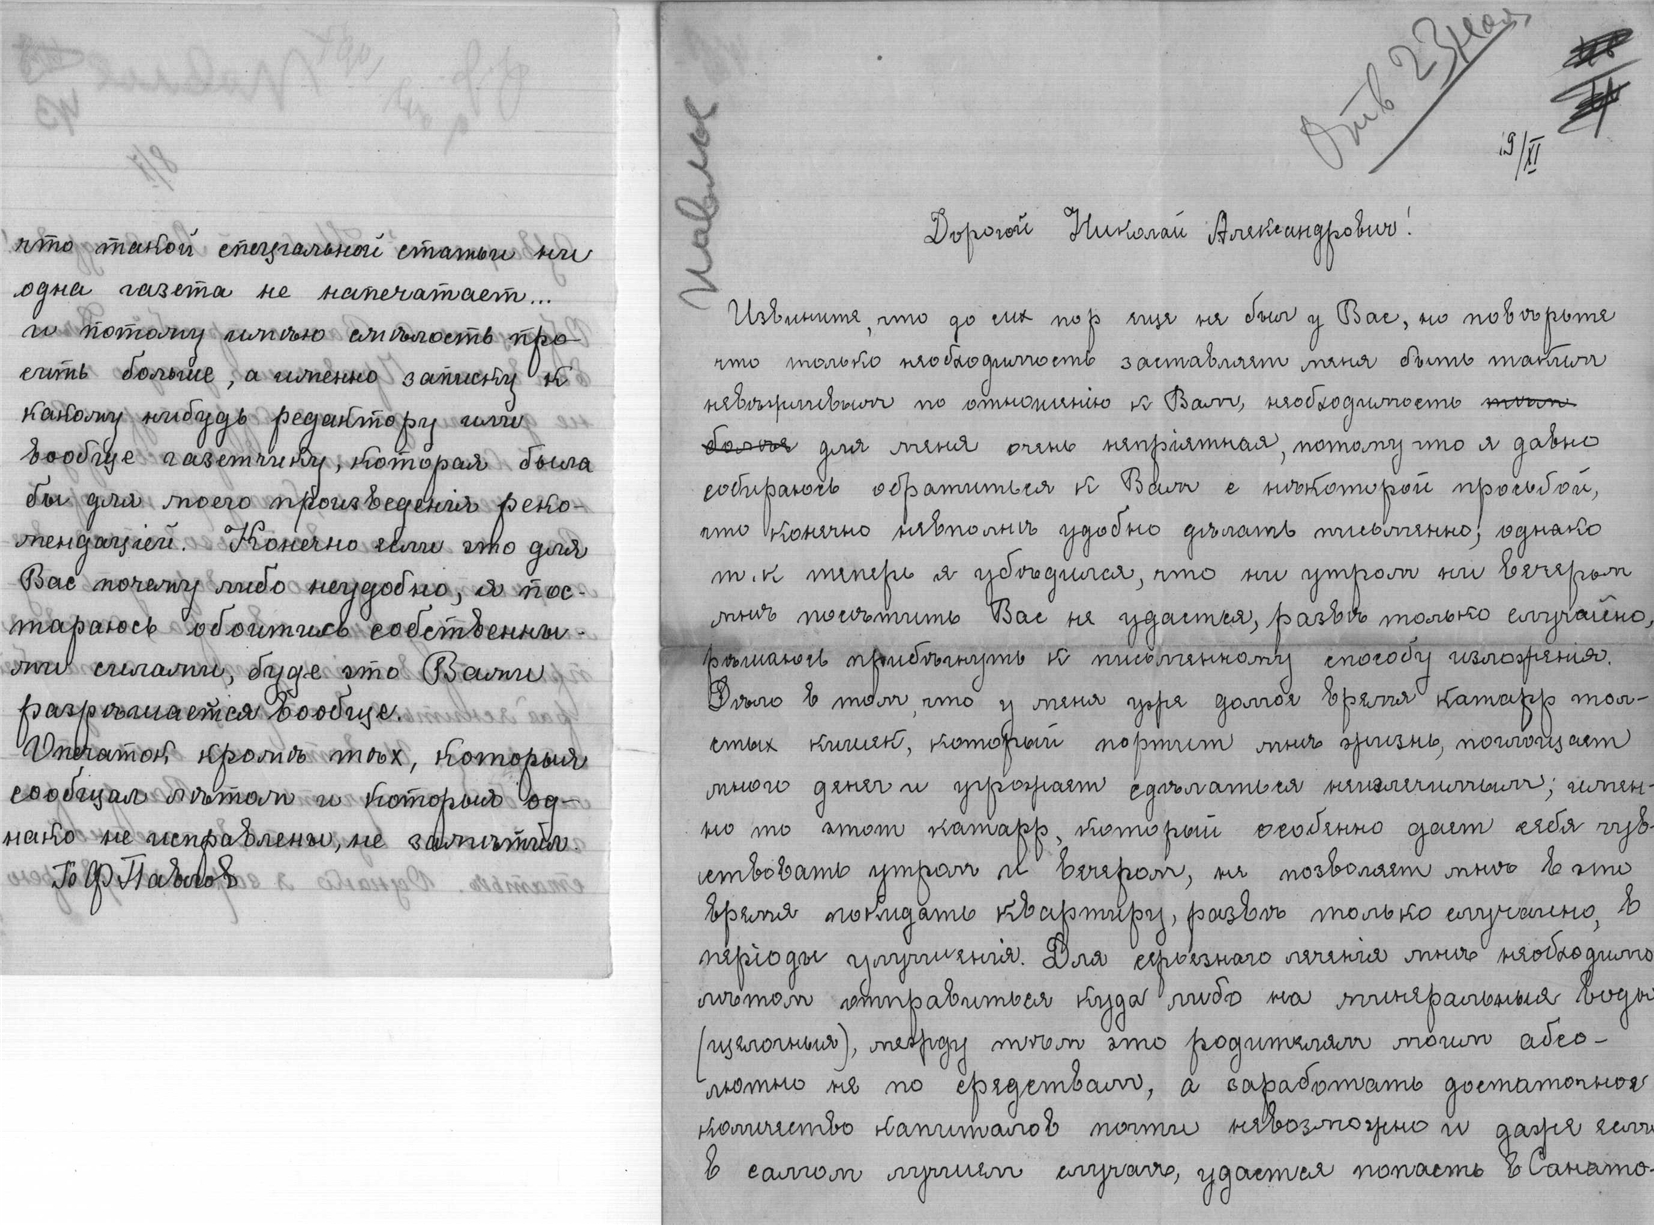 что такой специальной статьи ни
одна газета не напечатает...
и потому имѣю смѣлость про-
сить больше, а именно записку к
какому нибудь редактору или
вообще газетчику, которая была
бы для моего произведенія реко-
мендаціей. Конечно если это для
Вас почему либо неудобно, я пос-
тараюсь обоитись собственны-
ми силами, буде это Вами
разрѣшается вообще.
Опечаток кромѣ тѣх, которыя
сообщал лѣтом и которыя од-
нако не исправлены, не замѣтил.
Г Ф Павлов
Павлов
Отв 23 ноя
19/XI
Дорогой Николай Александрович!
Извините, что до сих пор еще не был у Вас, но повѣрьте
что только необходимость заставляет меня быть таким
невѣжливым по отношенію к Вам, необходимость
для меня очень непріятная, потому что я давно
собираюсь обратиться к Вам с нѣкоторой просьбой,
что конечно невполнѣ удобно дѣлать письменно; однако
т.к теперь я убѣдился, что ни утром ни вечером
мнѣ посѣтить Вас не удастся, развѣ только случайно,
рѣшаюсь прибѣгнуть к письменному способу изложения.
Дѣло в том, что у меня уже долгое время катарр тол-
стых кишек, который портит мнѣ жизнь, поглощает
много денег и угрожает сдѣлаться неизлечимым; имен-
но то этот катарр, который особенно дает себя чув-
ствовать утром и вечером, не позволяет мнѣ в это
время покидать квартиру, развѣ только случаино, в
періоды улучшенія. Для серьезнаго леченія мнѣ необходимо
лѣтом отправиться куда либо на минеральныя воды
(щелочныя), между тѣм это родителям моим абсо-
лютно не по средствам, а заработать достаточное
количество капиталов почти невозможно и даже если
в самом лучшем случаѣ, удастся попасть в Санато-